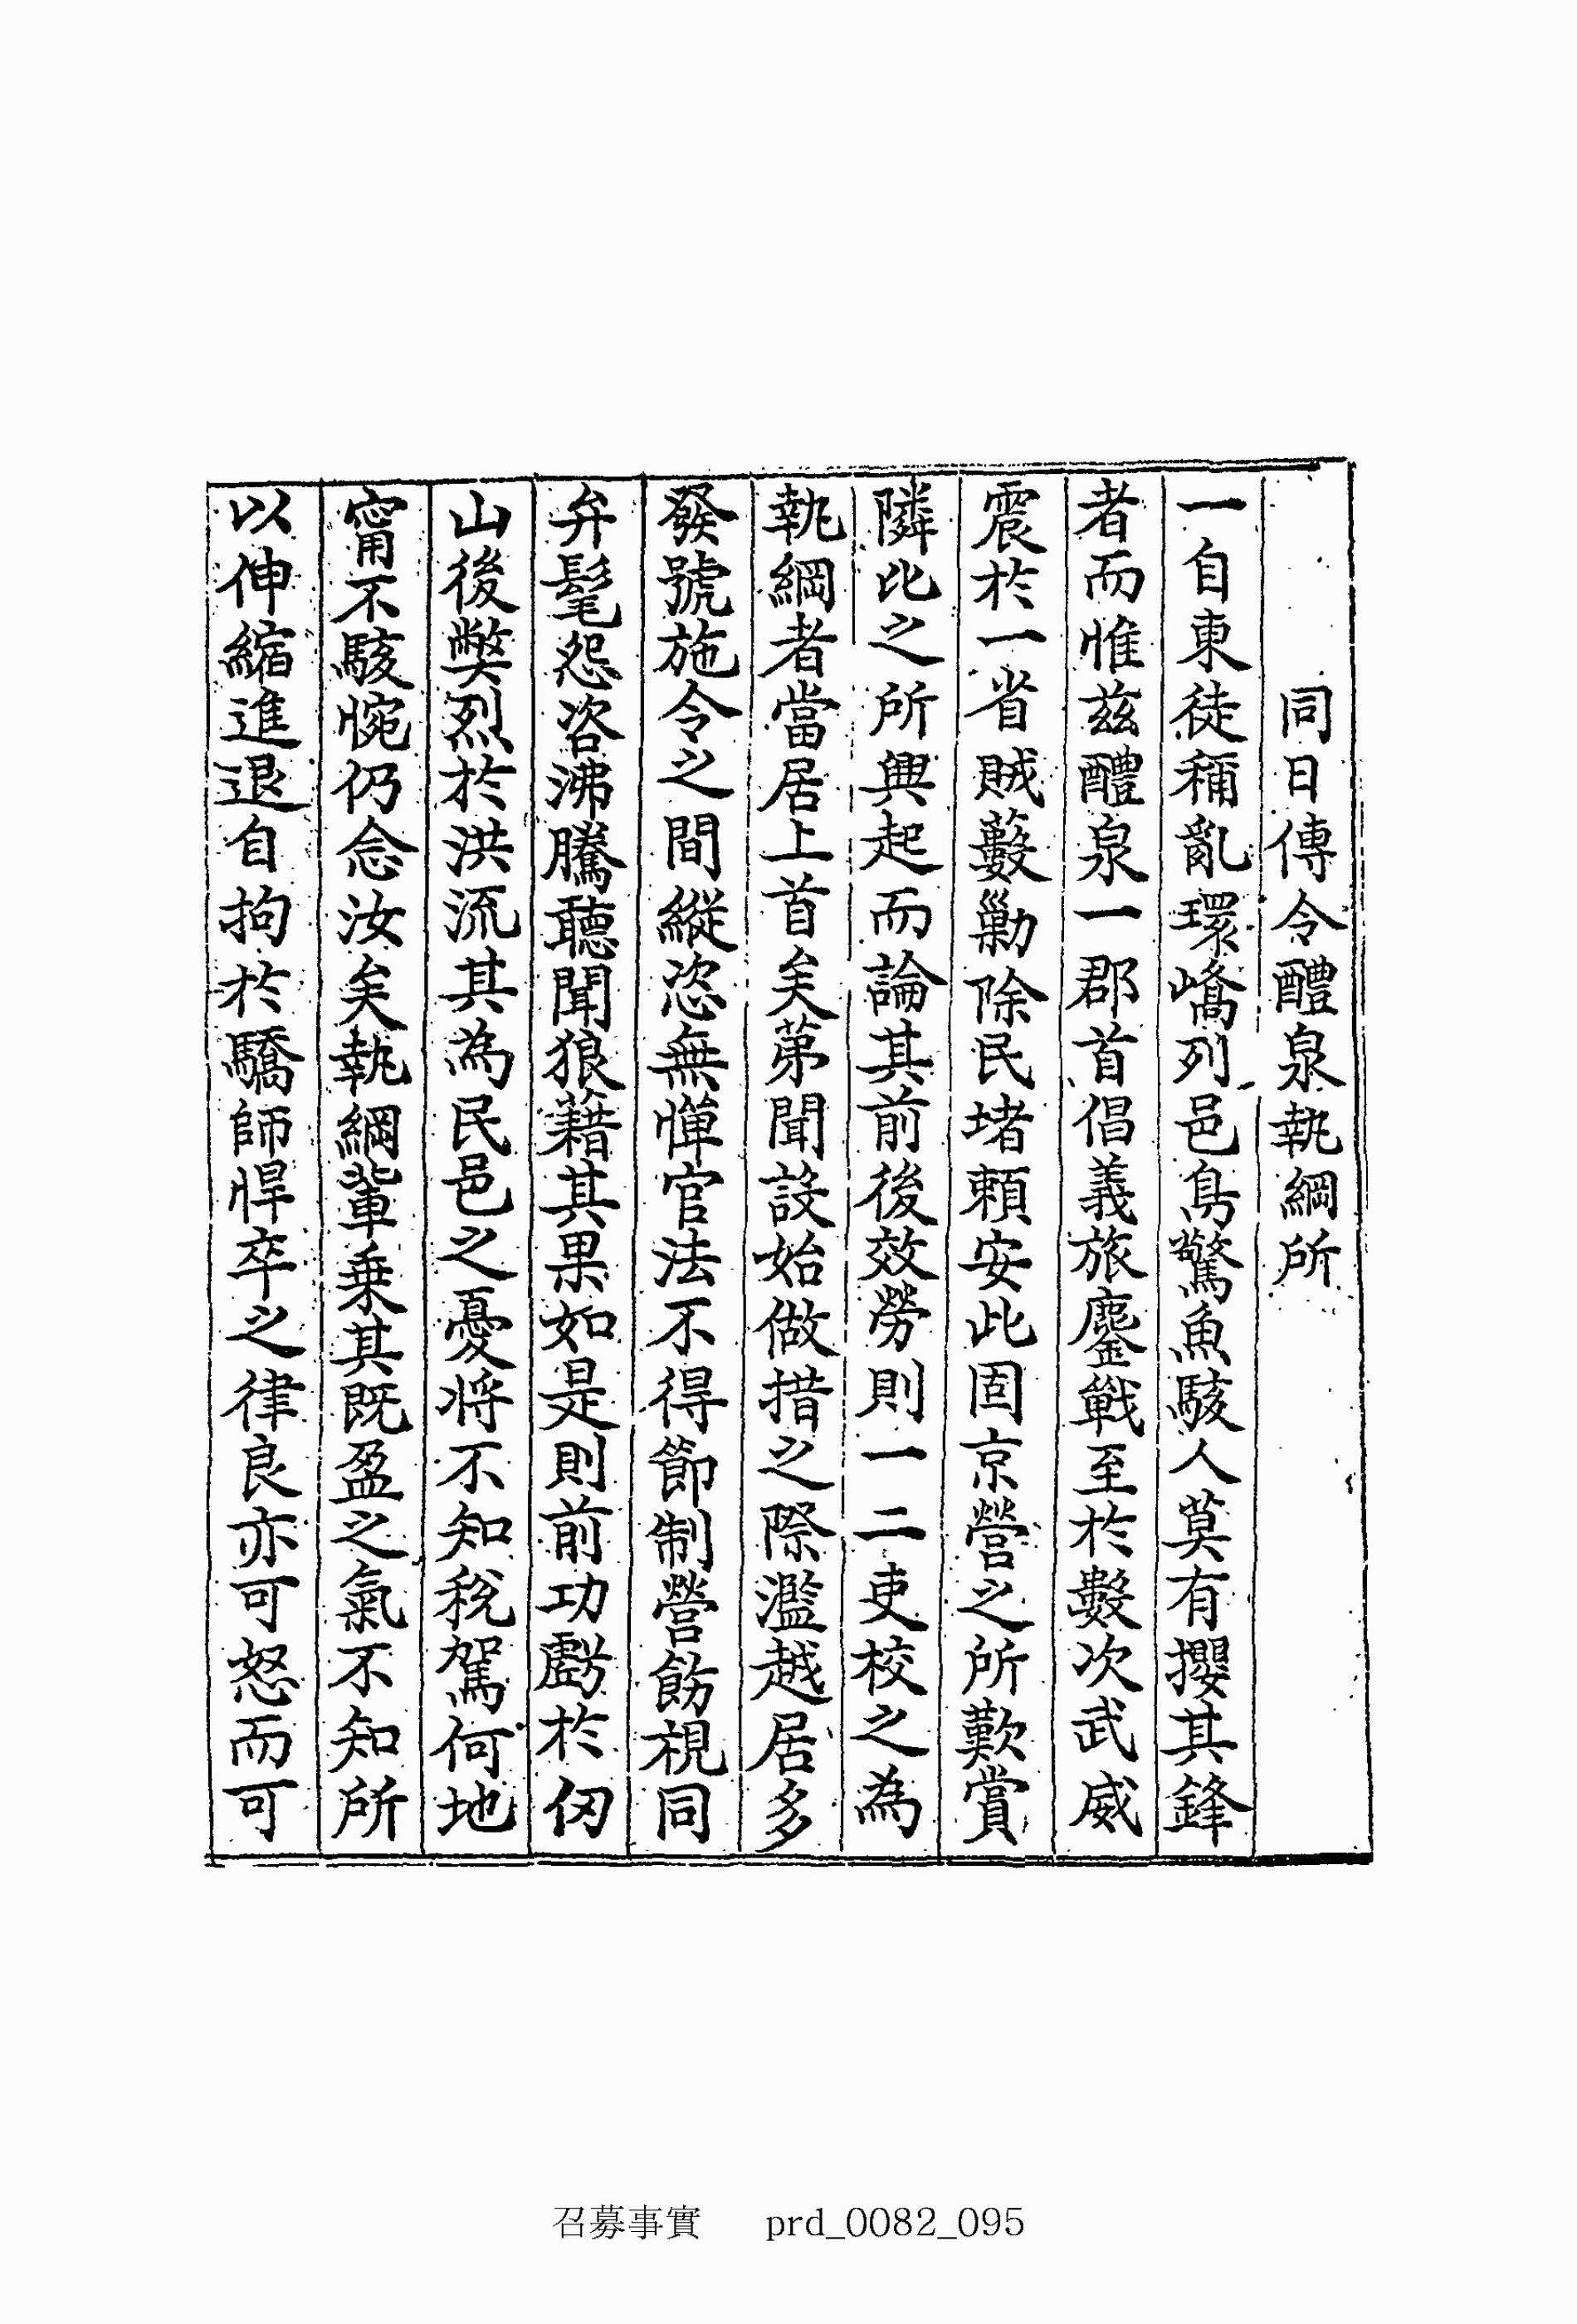 同日傳令醴泉執綱所
一自東徒稱亂環嶠列邑鳥驚魚駭人莫有攖其鋒
者而惟玆醴泉一郡首倡義旅鏖戰至於數次武威
震於一省賊藪勦除民堵賴安此固京營之所歎賞
隣比之所興起而論其前後效勞則一二吏校之為
執綱者當居上首矣苐聞設始做措之際濫越居多
發號施令之間縱恣無憚官法不得節制營飭視同
弁髦怨咨沸騰聽聞狼藉其果如是則前功虧於仞
山後弊烈於洪流其為民邑之憂將不知稅駕何地
甯不駭惋仍念汝矣執綱輩乗其既盈之氣不知所
以伸縮進退自拘於驕師悍卒之律良亦可怒而可